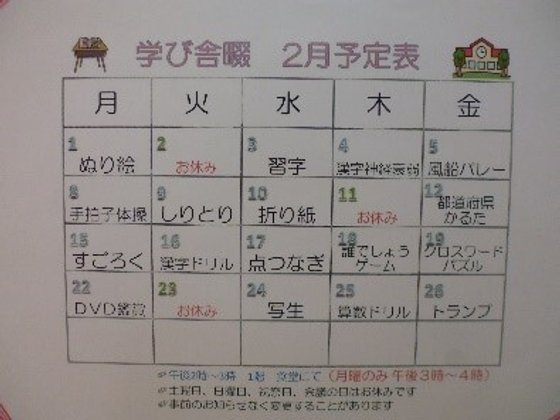 学び舎畷 2月予定表
月 火 水 木 金
1 2 3 4 5
ぬり絵 お休み 習字 漢字神経衰弱 風船バレー
8 9 10 11 12
手拍子体操 しりとり 折り紙 お休み 都道府県
かるた
15 16 17 18 19
すごろく 漢字ドリル 点つなぎ 誰でしょう
ゲーム クロスワード
パズル
22 23 24 25 26
DVD鑑賞 お休み 写生 算数ドリル トランプ
午後2時～3時 1階 食堂にて (月曜のみ 午後3時～4時)
土曜日、日曜日、祝祭日、会議の日はお休みです
事前のお知らせなく変更することがあります